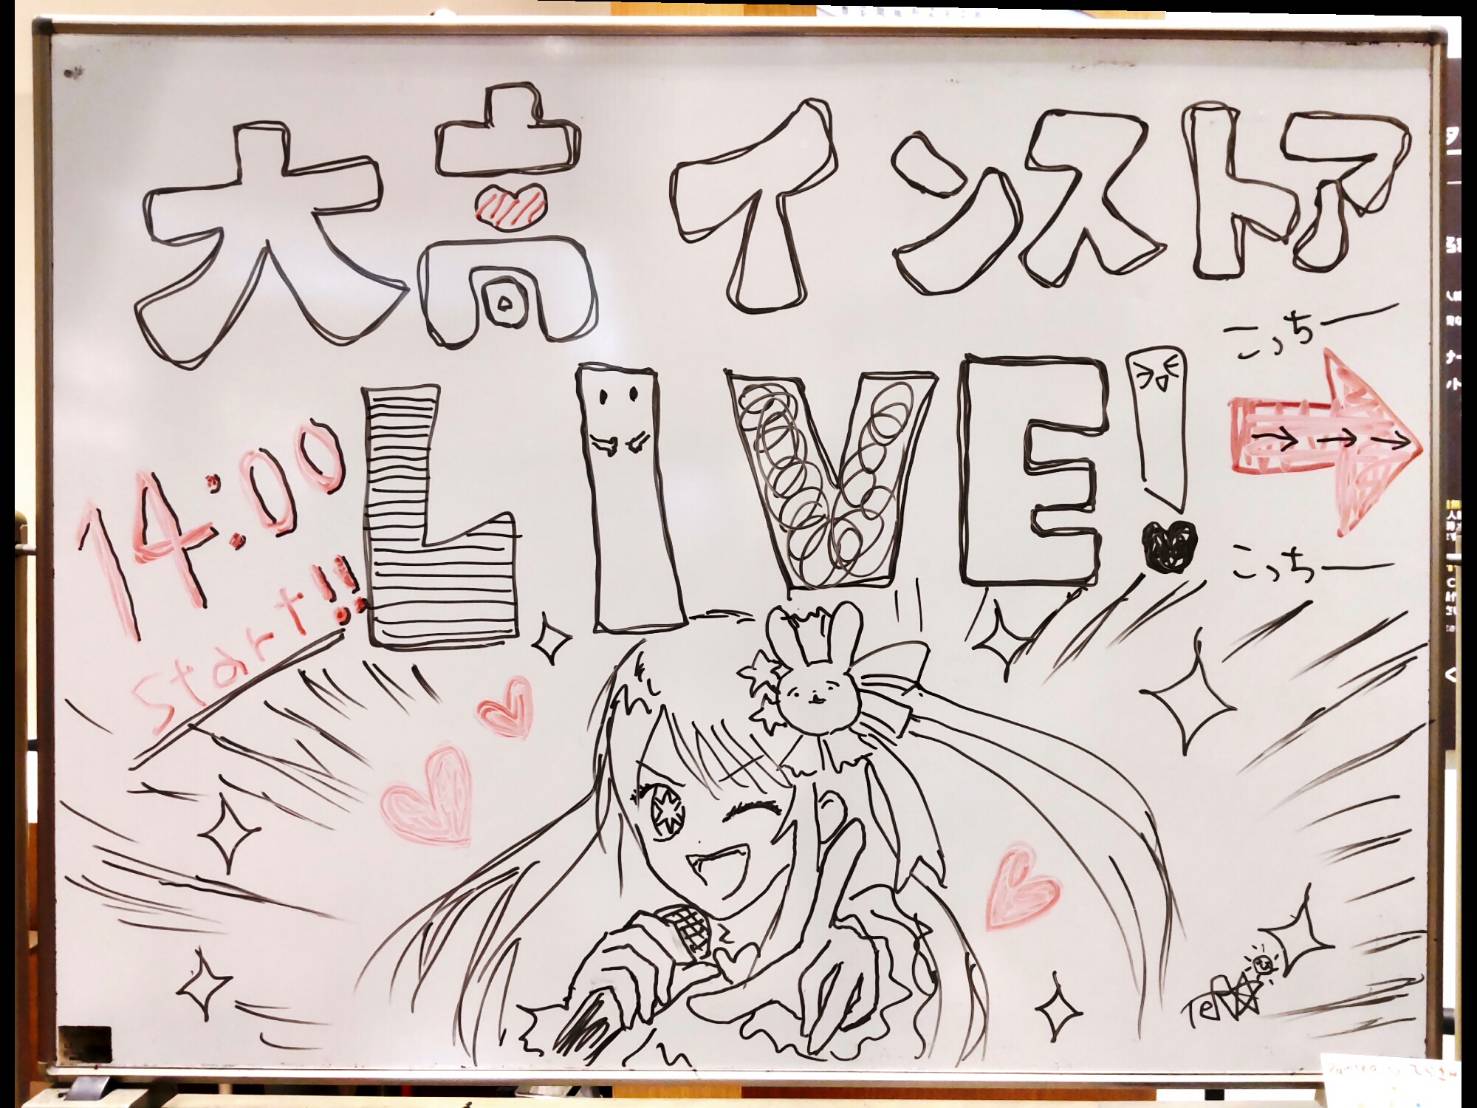 大高 インストア
LIVE!
こっちー
14:00
start!!
こっちー